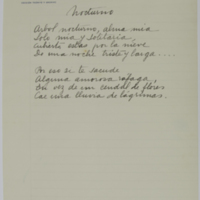 Nocturno
Arbol nocturno, alma mia
Sola mia y solitaria,
Cubierta estas por la nieve
De una noche triste y larga....
Por eso si te sacude
Alguna amorosa ráfaga,
En vez de un caudal de flores
Cae una lluvia de lágrimas.